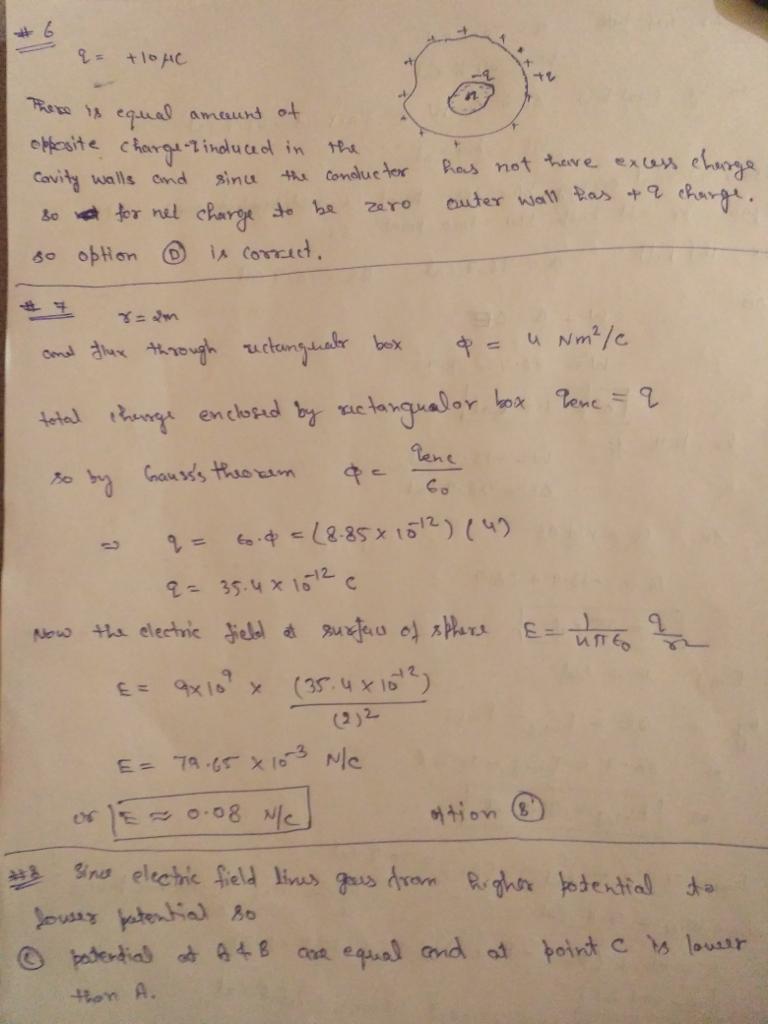 # 6
q = +10 μC
-q
+q
There is equal amount of
opposite charge -q induced in the
cavity walls and since the conductor has not have excess charge
so for net charge to be zero outer wall has + q charge.
so option (D) is correct.
# 7 r = 2m
and flux through rectangualr box φ = 4 Nm²/C
total charge enclosed by rectangualor box qenc = q
so by Gauss's theorem φ = qenc/ε₀
⇒ q = ε₀.φ = (8.85 × 10⁻¹²) (4)
q = 35.4 × 10⁻¹² C
Now the electric field at surface of sphere E = 1/4πε₀ q/r²
E = 9×10⁹ × (35.4 × 10⁻¹²)/(2)²
E = 79.65 × 10⁻³ N/C
or E ≈ 0.08 N/C option (B)
#8 Since electric field lines goes from higher potential to
lower potential so
(C) potential at A & B are equal and at point C is lower
than A.